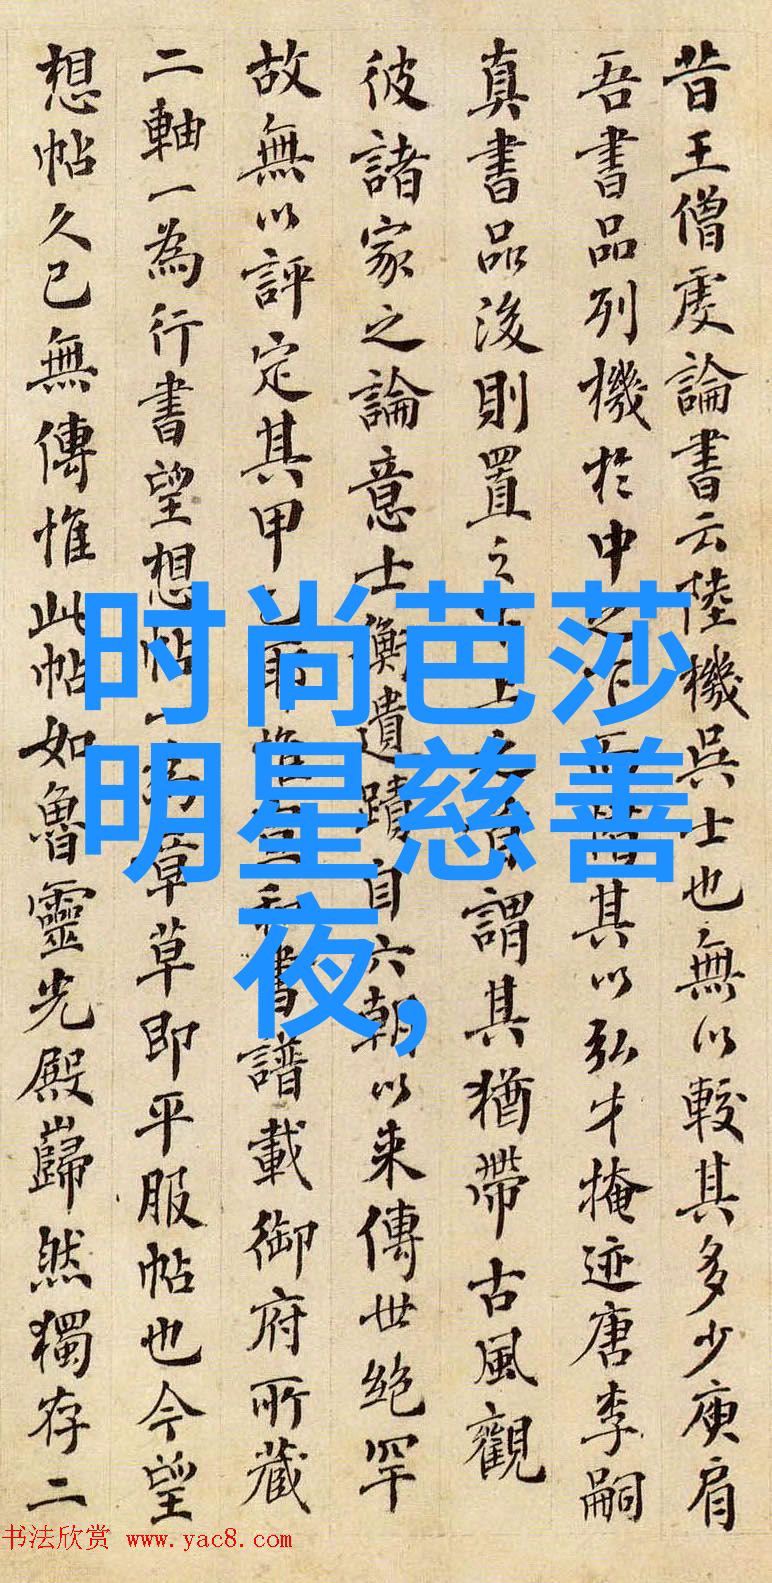 昔王僧虔論書云陸機吳士也無以較其多少庾肩
吾書品列機於中之下而惜其以弘才掩迹唐李嗣
真書品後則置之下上之首謂其猶帶古風觀
彼諸家之論意士衡遺蹟自六朝以来傳世絶罕
故無以評定其甲乙耳惟宣和書譜載御府所藏
二軸一為行書望想帖一為章草即平服帖也今望
想帖久已無傳惟此帖如魯靈光殿巋然獨存二
时尚芭莎
明星慈善
夜,
书法欣赏 www.yac8.com